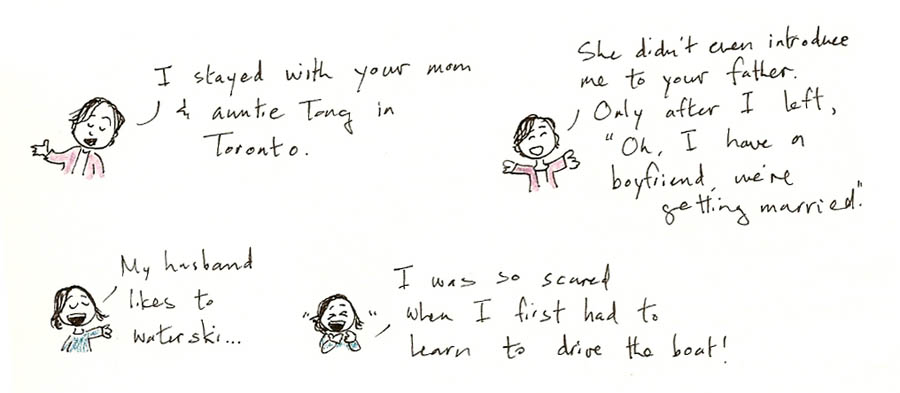 I stayed with your mom
& auntie Tong in
Toronto.
She didn't even introduce
me to your father.
Only after I left,
"Oh, I have a
boyfriend, we're
getting married."
My husband
likes to
waterski...
I was so scared
when I first had to
learn to drive the boat!